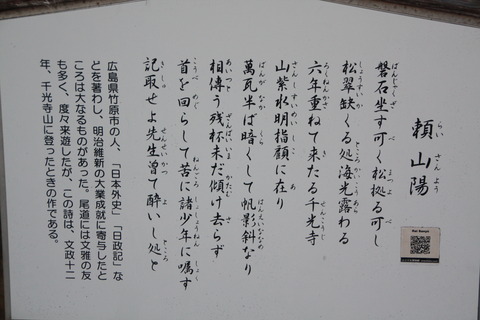 頼山陽
磐石坐す可く松拠る可し
松翠缺くる処海光露わる
六年重ねて来たる千光寺
山紫水明指顧に在り
萬瓦半ば暗くして帆影斜なり
相傳う残杯未だ傾け去らず
首を回らして苦に諸少年に嘱す
記取せよ先生曽て酔いし処と
広島県竹原市の人、「日本外史」「日政記」な
どを著わし、明治維新の大業成就に寄与したと
ころは大なるものがあった。尾道には文雅の友
も多く、度々来遊したが、この詩は、文政十二
年、千光寺山に登ったときの作である。